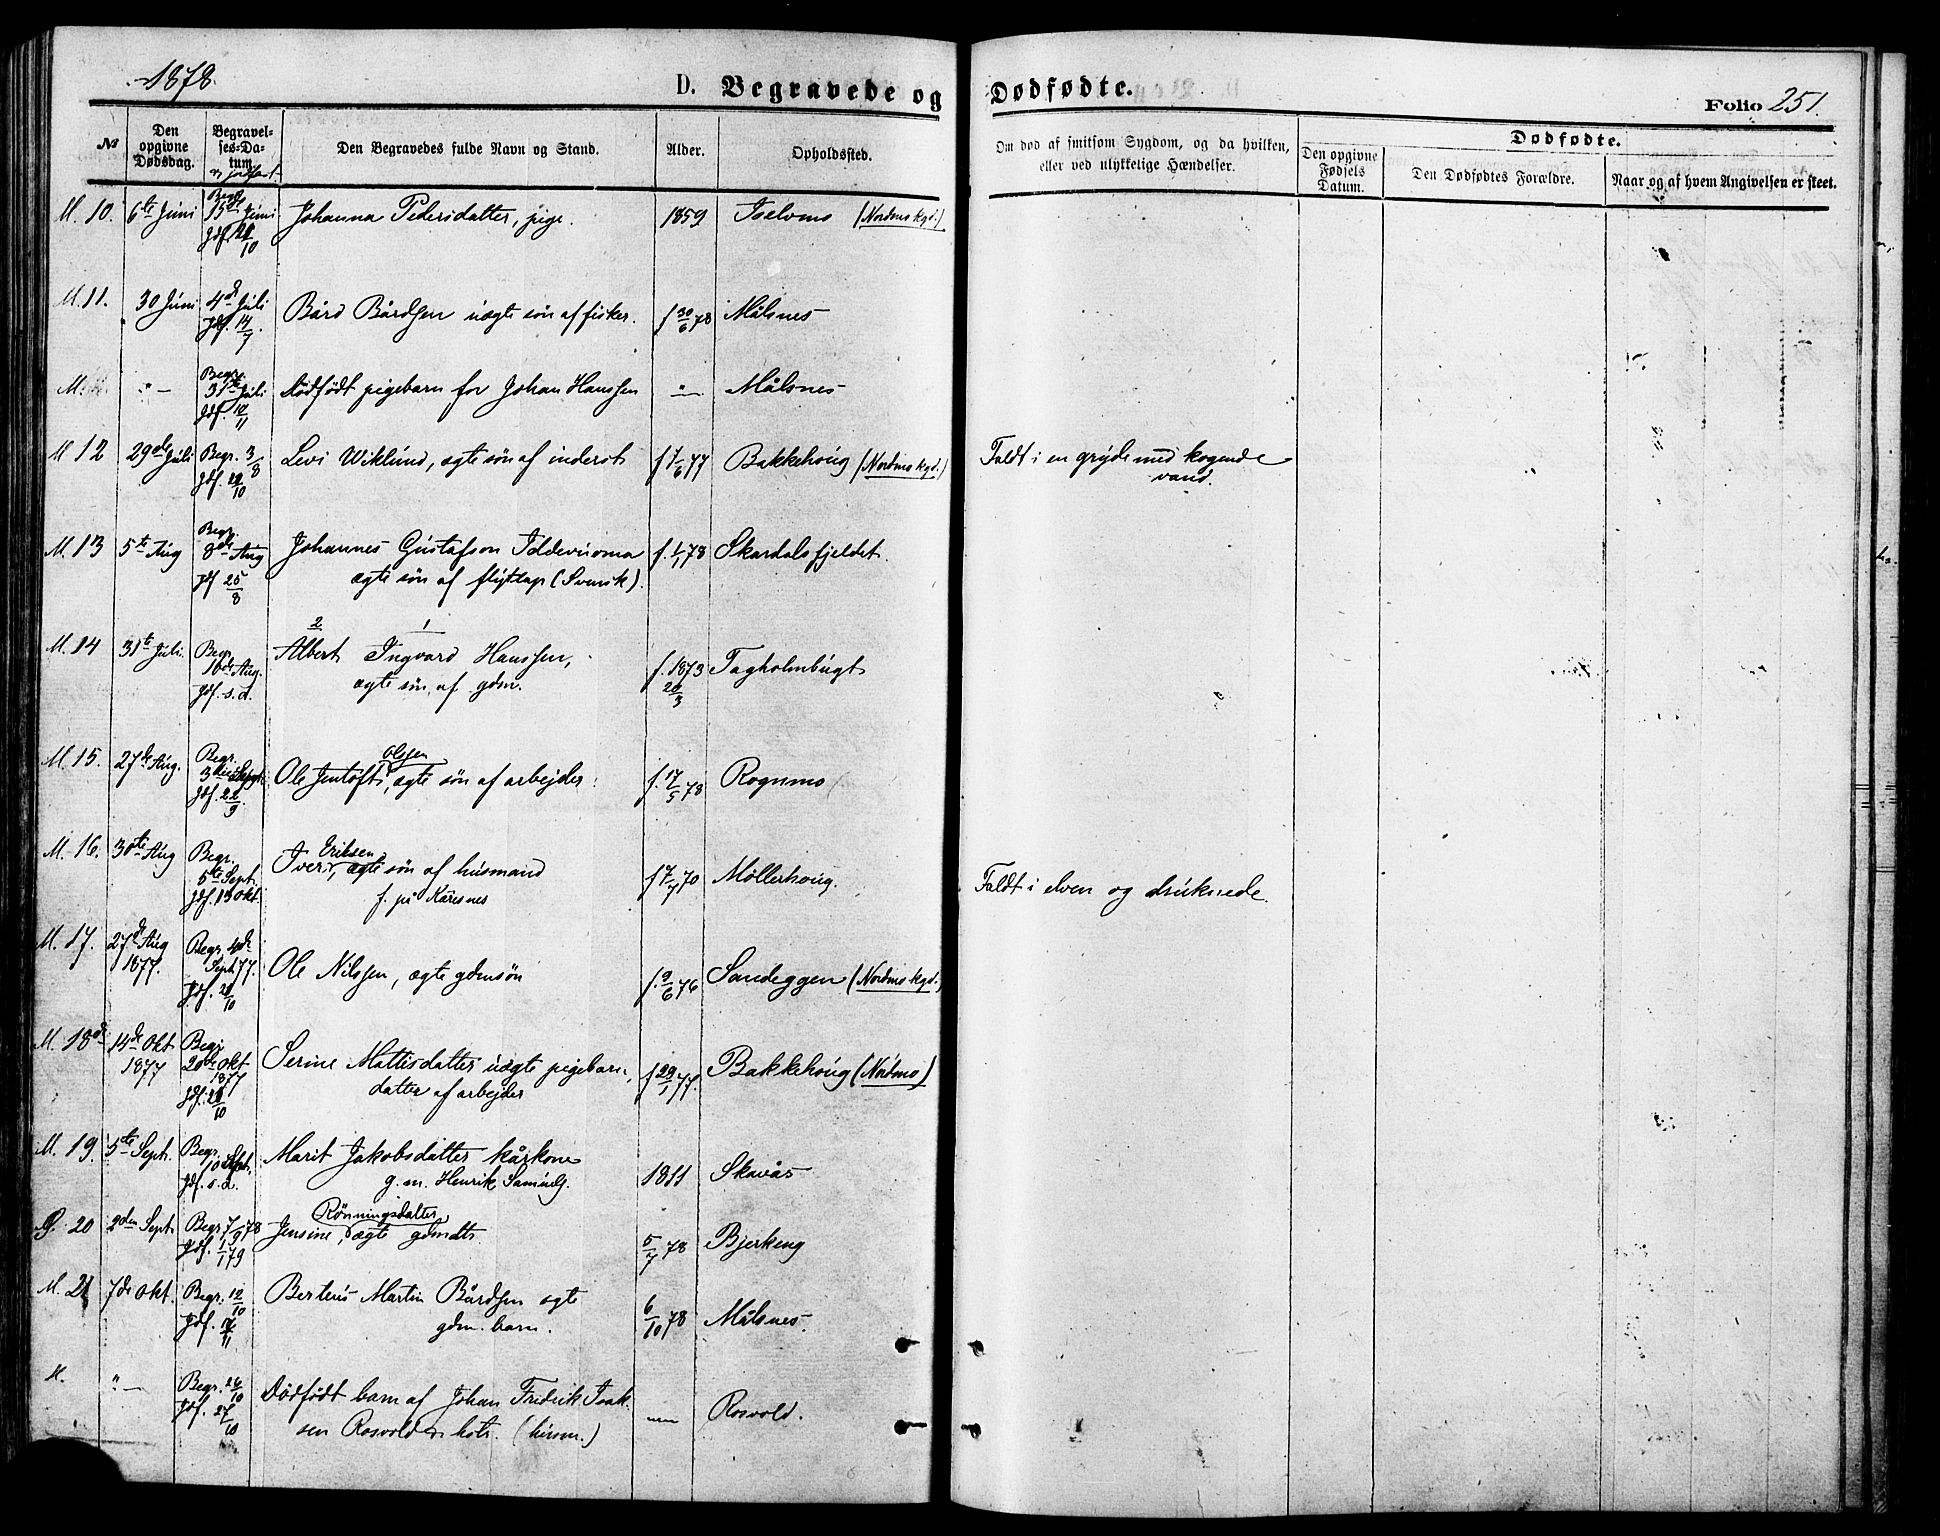 1878.
D. Begravede og Dødfødte.
Folio 251.
№
Den opgivne Dødsdag.
Begravelses-Datum. og jordfæst.
Den Begravedes fulde Navn og Stand.
Alder.
Opholdssted.
Om død af smitsom Sygdom, og da hvilken, eller ved ulykkelige Hændelser.
Dødfødte.
Den opgivne Fødsels Datum.
Den Dødfødtes Forældre.
Naar og af hvem Angivelsen er skeet.
M. 10. 6te Juni Begr. 15de Juni Jdf. 20/10 Johanna Pedersdatter, pige. 1859 Iselvmo (Nordmo kgd.)
M. 11. 30 Juni 4de Juli Jdf. 14/7. Bård Bårdsen uægte søn af fisker. f 30/6 78 Målsnes
M. " — Begr. 31te Juli Jdf. 10/11 dödfödt pigebarn for Johan Hanssen " — Målsnes
M 12 29de Juli Begr. 3/8 Jdf. 20/10 Levi Wiklund, ægte søn af inderst f 1/6 77 Bakkehoug (Nordmo kgd.) Faldt i en gryde med kogende
vand.
M. 13 5te Aug Begr. 8de Aug Jdf 25/8 Johannes Gustafson Iddevuoma f. 1/1 78 Skardalsfjeldet.
ægte søn af flytlap (Svensk).
M. 14 31te Juli. Begr. 10de Aug. Jdf. s. d. 2 Albert 1 Ingvard Hanssen, f. 1873 20/3 Tagholmbugt
ægte søn, af gdm.
M. 15. 27de Aug. Begr. 3die Sept. Jdf. 22/9. Ole Jentoft Olsen, ægte søn af arbejder. f. 17/5 78 Rognmo
M. 16. 30te Aug Begr. 5te Sept. Jdf. 13 Okt. Iver Eriksen, ægte søn af husmand f 7/7 70 Møllerhoug. Faldt i elven og druknede.
f. på Kåresnes
M. 17. 27de Aug 1877. Begr. 4de Sept 77. Jdf. 20/10 Ole Nilssen, ægte gdmsøn f. 9/6 76 Sandeggen (Nordmo kgd.)
M. 18de 14de Okt 1877 Begr 20de Okt 1877 Jdf. 20/10 Serine Mattisdatter uægte pigebarn, f 29/1 77. Bakkehoug (Nordmo)
datter af arbejder
M. 19. 5te Sept. Begr. 10 Sept. Jdf. s. d. Marit Jakobsdatter kårkone 1811 Skavås
g. m. Henrik Samuelg.
G. 20 2den Sept. Begr. 7/9 78 Jdf. 1/1 79 Jensine Rönningsdatter, ægte gdmdtr. 5/7 78 Bjerkeng
M. 21 7de Okt. Begr. 12/10 Jdf. 10/11 Berteus Martin Bårdsen ægte 6/10 78 Målsnes
gdm. barn.
M. " — Begr. 26/10 Jdf. 27/10 Dödfödt barn af Johan Fredrik Isak- — Rosvold.
sen Rosvold (husm.)